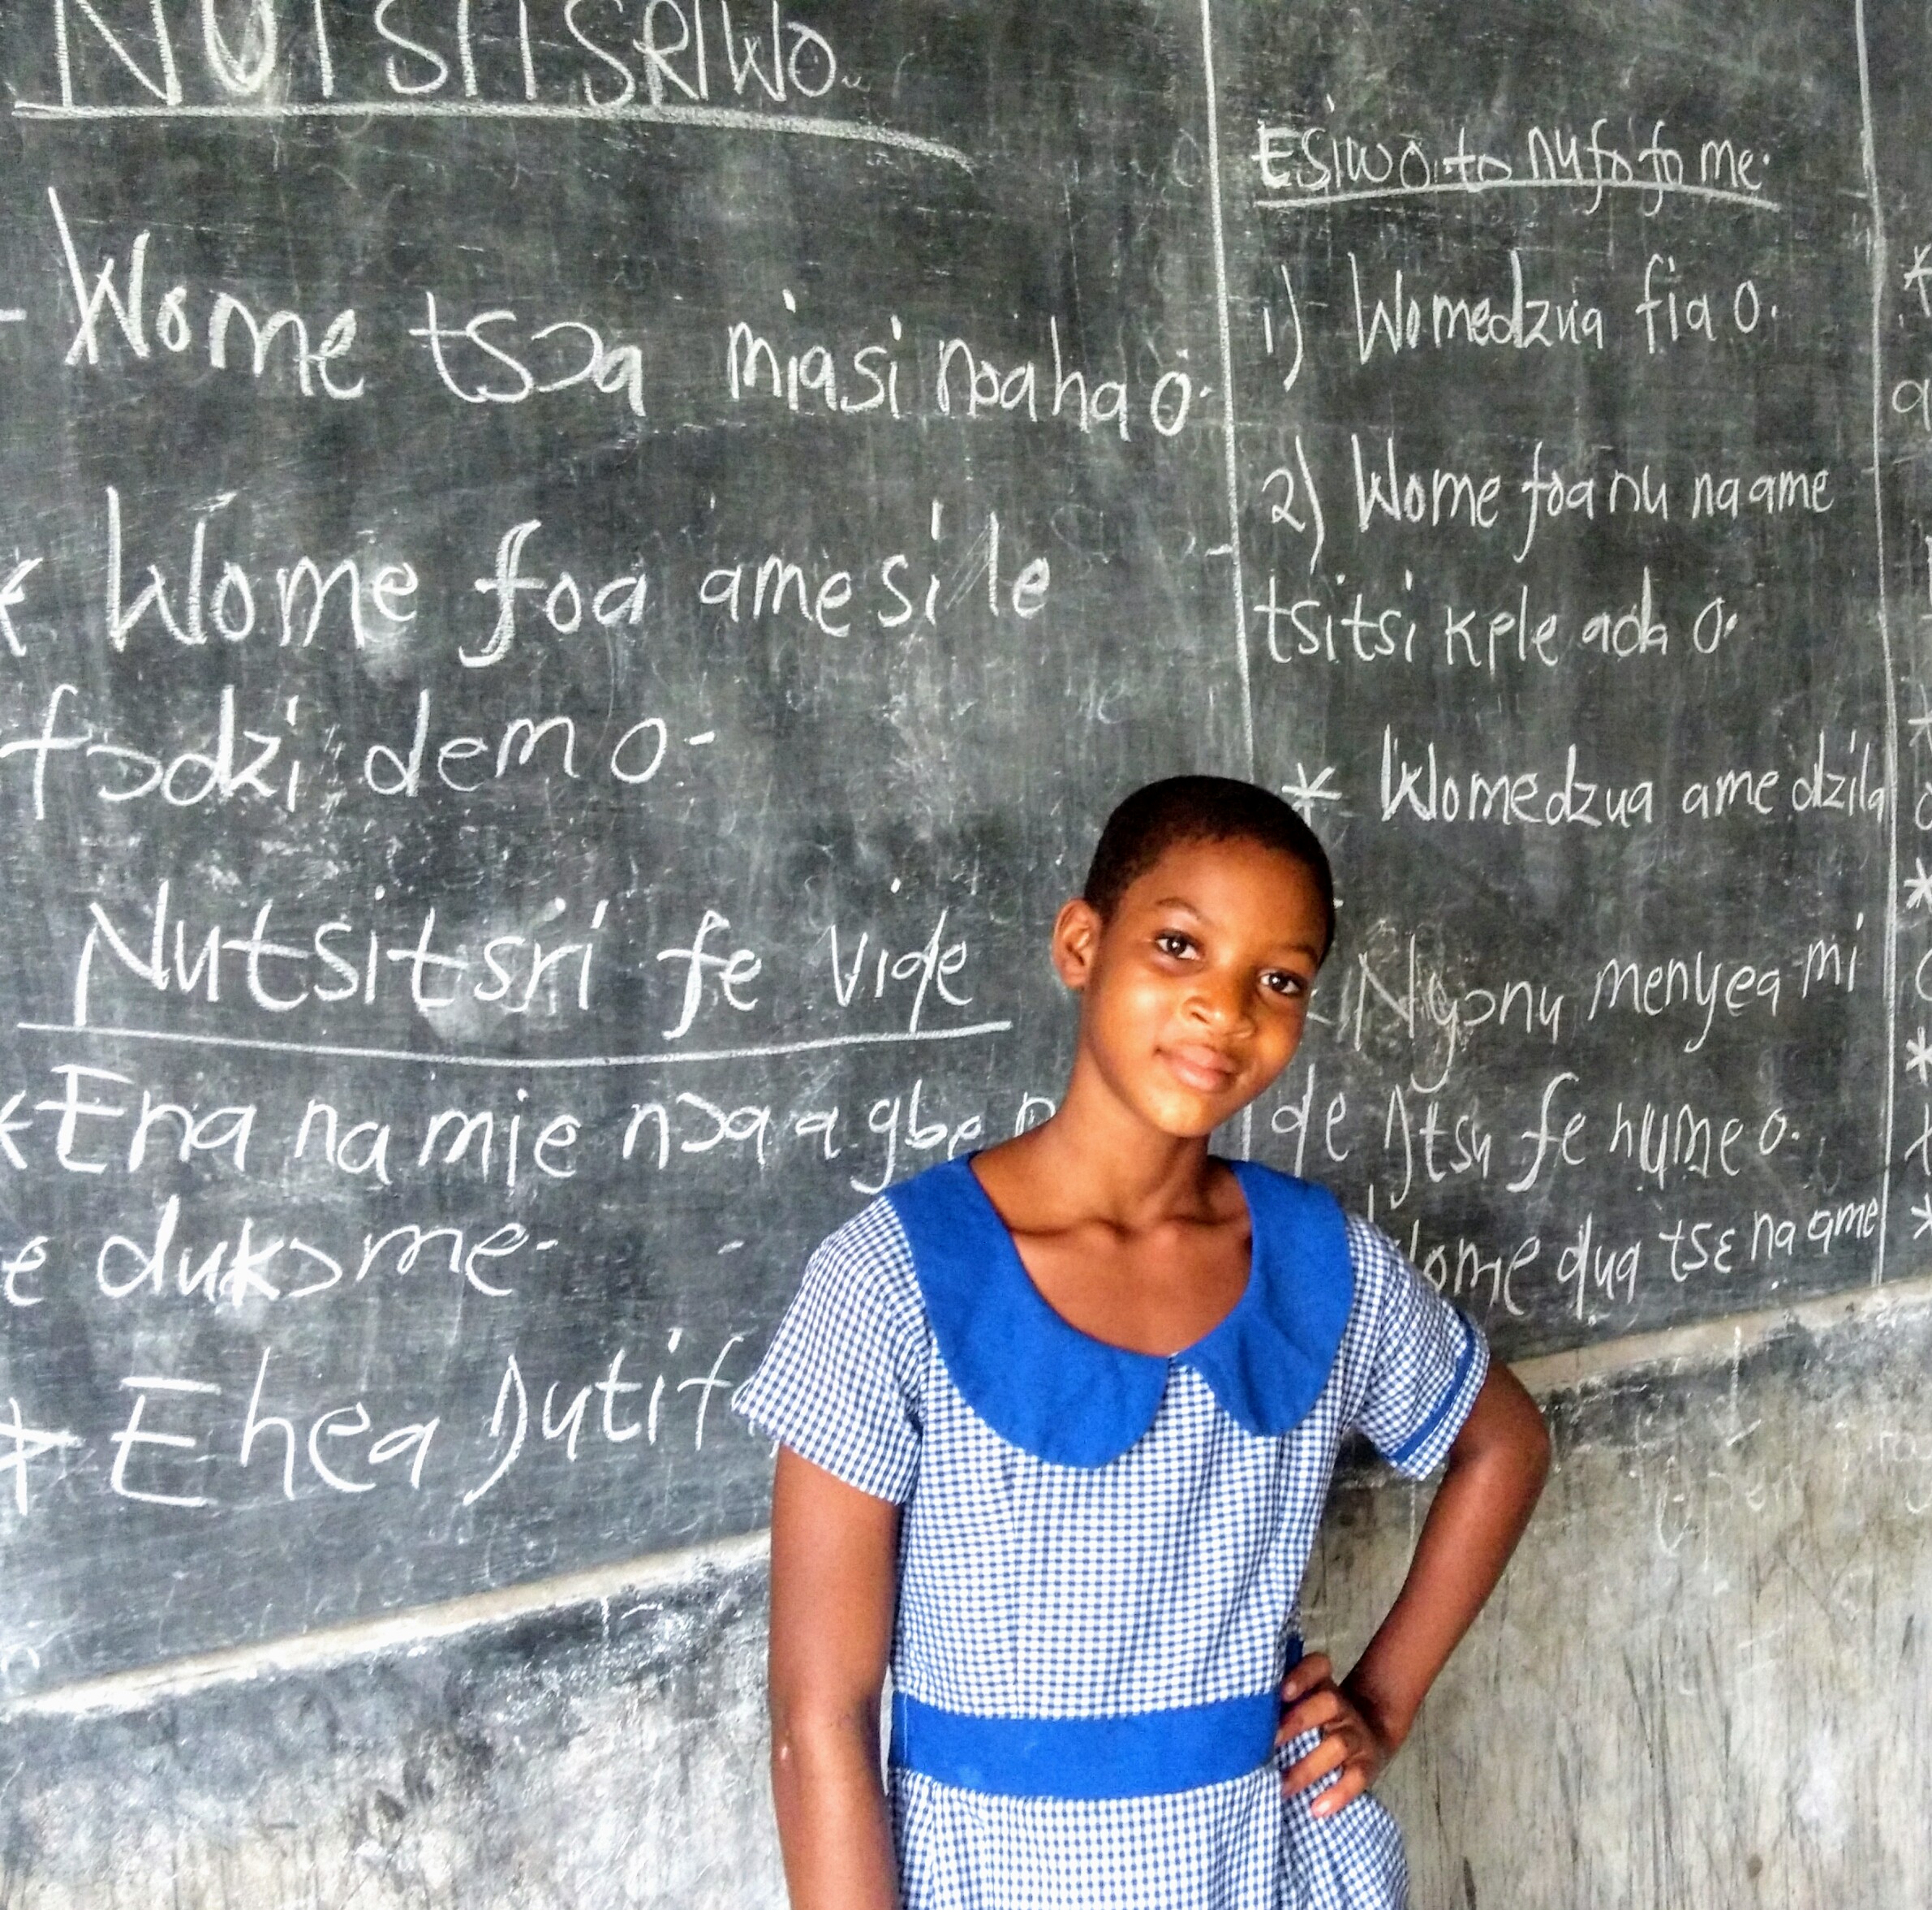 NUTSITSRIWO.
- Wome tsɔa miasi nɔaha o.
* Wome foa ame si le
fɔdzi demo-
Nutsitsri fe viɖe
* Ena namie nɔa agbe
e dukɔ me-
* Ehea ŋutif
Esiwo to nufofo me.
1) Womedzua fia o.
2) Wome foa nu na ame
tsitsi kple ada o.
* Womedzua ame dzila
Nyɔnu menyea mi
ɖe ŋtsu fe nume o.
ome ɖua tsɛ na ame